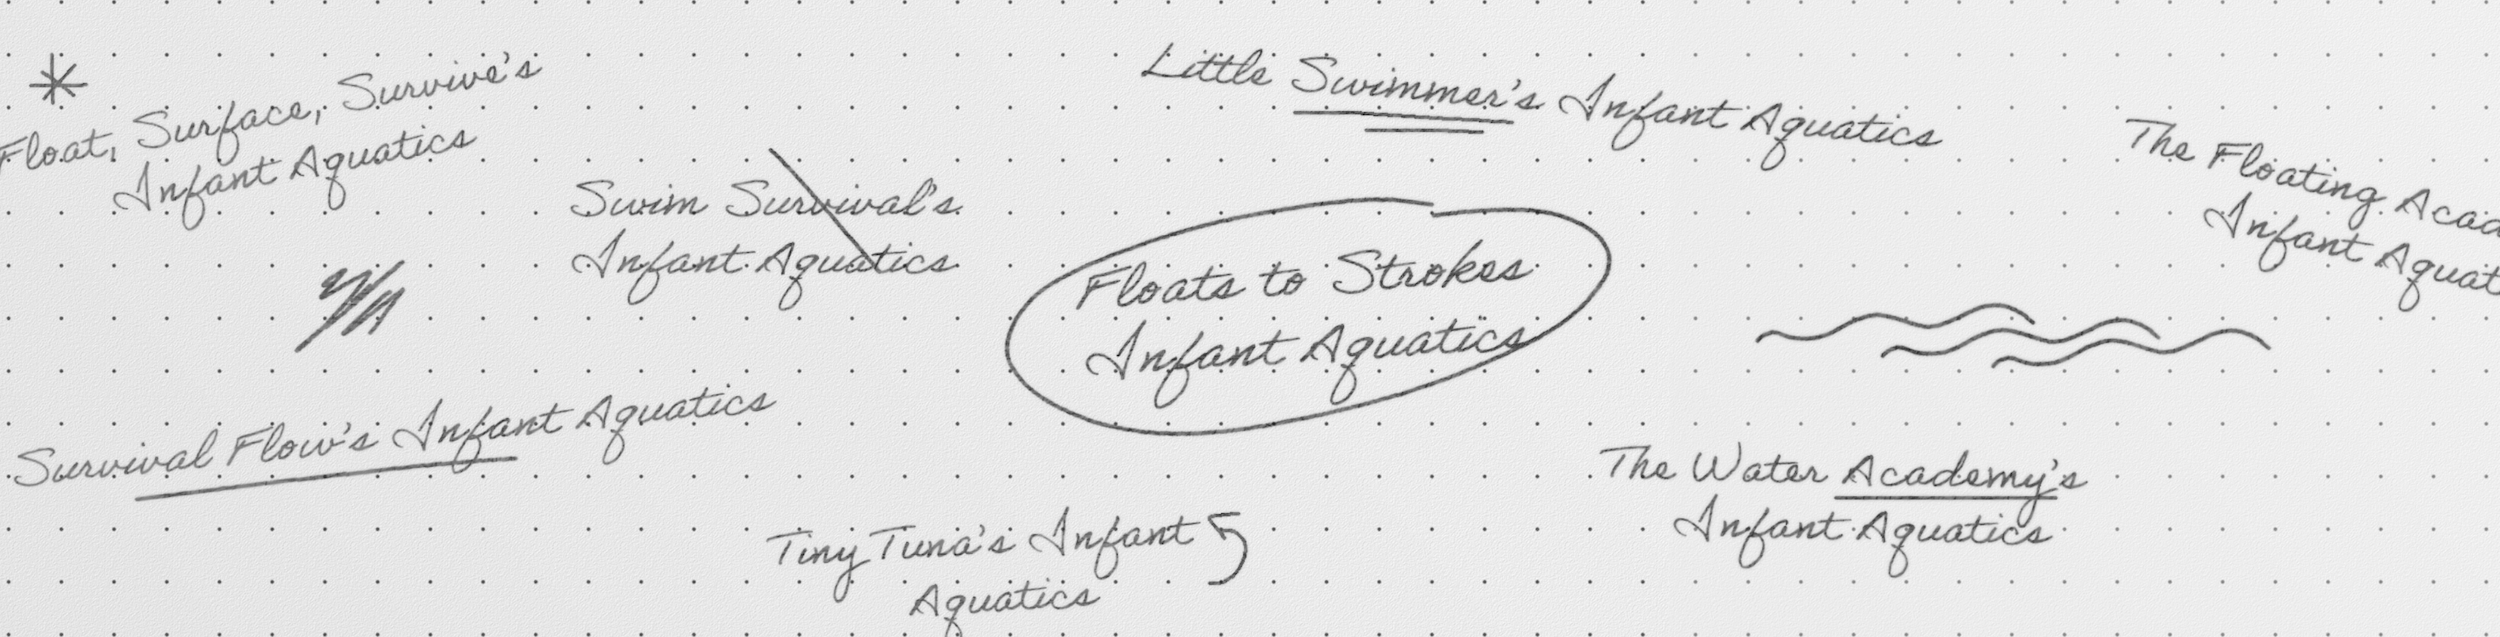 Float, Surface, Survive's
Infant Aquatics
Little Swimmer's Infant Aquatics
The Floating
Infant
Swim Survival's
Infant Aquatics
Floats to Strokes
Infant Aquatics
Survival Flow's Infant Aquatics
The Water Academy's
Infant Aquatics
Tiny Tuna's Infant
Aquatics